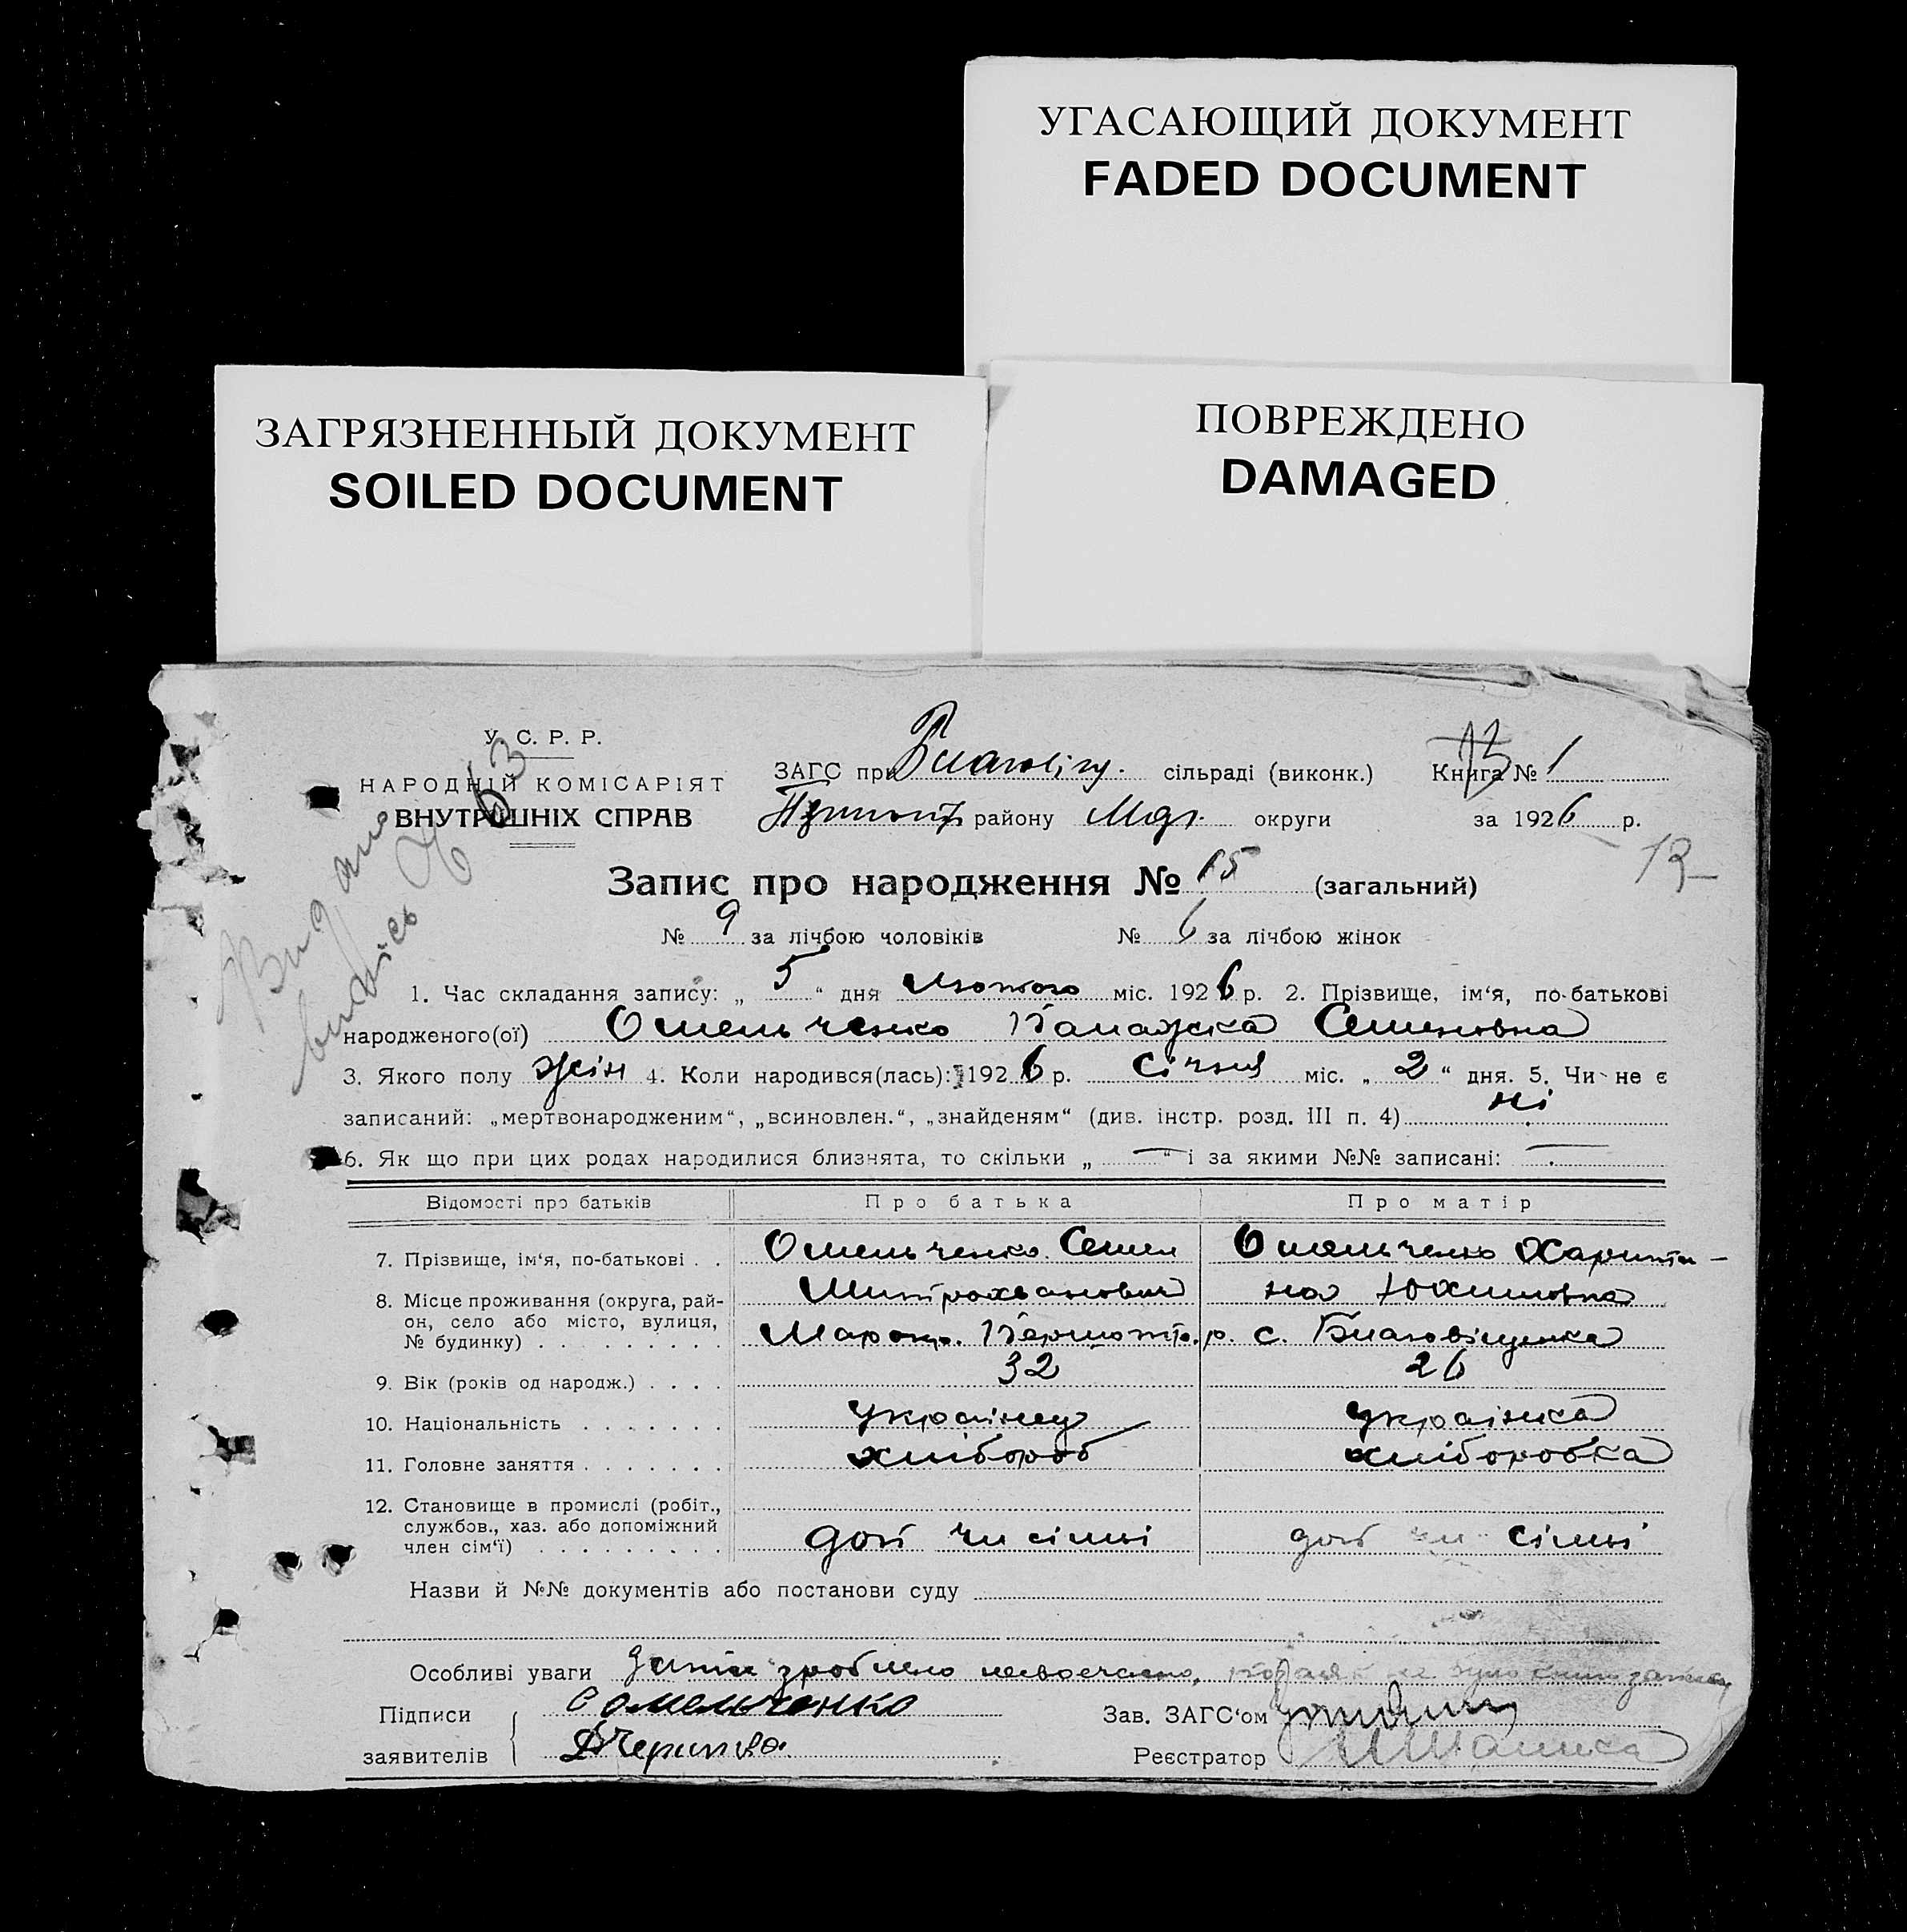 УГАСАЮЩИЙ ДОКУМЕНТ
FADED DOCUMENT
ЗАГРЯЗНЕННЫЙ ДОКУМЕНТ
SOILED DOCUMENT
ПОВРЕЖДЕНО
DAMAGED
У. С. Р. Р.
НАРОДНІЙ КОМІСАРІЯТ
ВНУТРІШНІХ СПРАВ
Видано
випись № 63
ЗАГС при Благовіщ. сільраді (виконк.) Книга № 1
району округи за 1926 р.
13
Запис про народження № 15 (загальний)
№ 9 за лічбою чоловіків № 6 за лічбою жінок
1. Час складання запису: „ 5 “ дня Лютого міс. 1926 р. 2. Прізвище, ім‘я, по-батькові
народженого(ої) Омельченко Семеновна
3. Якого полу жін 4. Коли народився(лась): 1926 р. Січня міс. „ 2 “ дня. 5. Чи не є
записаний: „мертвонародженим“, „всиновлен.“, „знайденям“ (див. інстр. розд. III п. 4) ні
6. Як що при цих родах народилися близнята, то скільки „ — “ і за якими №№ записані: —
Відомості про батьків Про батька Про матір
7. Прізвище, ім‘я, по-батькові . . Омельченко Семен Омельченко Харити-
8. Місце проживання (округа, рай- Митрохванович на Юхимовна
он, село або місто, вулиця,
№ будинку) . . . . . . . . . р. с. Благовіщенка
9. Вік (років од народж.) . . . . 32 26
10. Національність . . . . . . . українец українка
11. Головне заняття . . . . . . . хлібороб хліборобка
12. Становище в промислі (робіт.,
службов., хаз. або допоміжний
член сім‘ї) . . . . . . . . . доп чл сімї доп чл сімї
Назви й №№ документів або постанови суду
Особливі уваги зроблено невоечасно,
Підписи Омельченко Зав. ЗАГС‘ом
заявителів Реєстратор